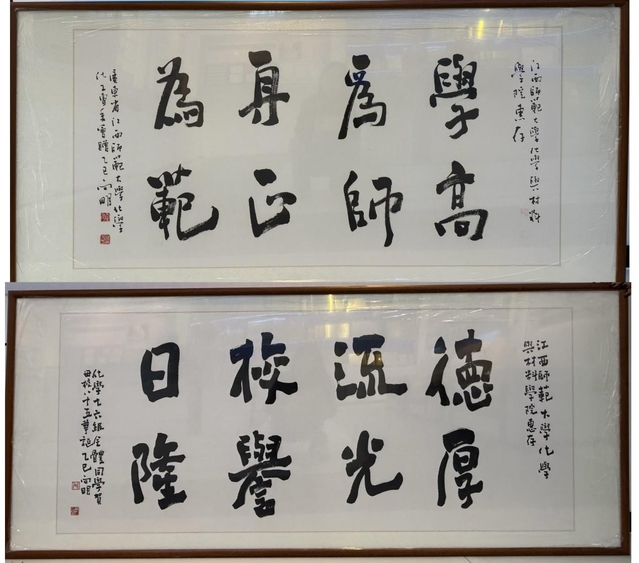 江西師範大學化學與材料
學院惠存
學高
爲師
身正
為範
廣東省江西師範大學化學
化工專委會贈乙巳向明
江西師範大學化學
與材料學院惠存
德厚
流光
校譽
日隆
化學七六組全體同學賀
母校八十五華誕乙巳向明